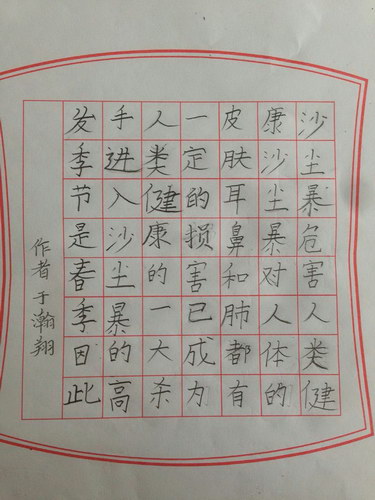 沙尘暴危害人类健
康沙尘暴对人体的
皮肤耳鼻和肺都有
一定的损害已成为
人类健康的一大杀
手进入沙尘暴的高
发季节是春季因此
作者于瀚翔